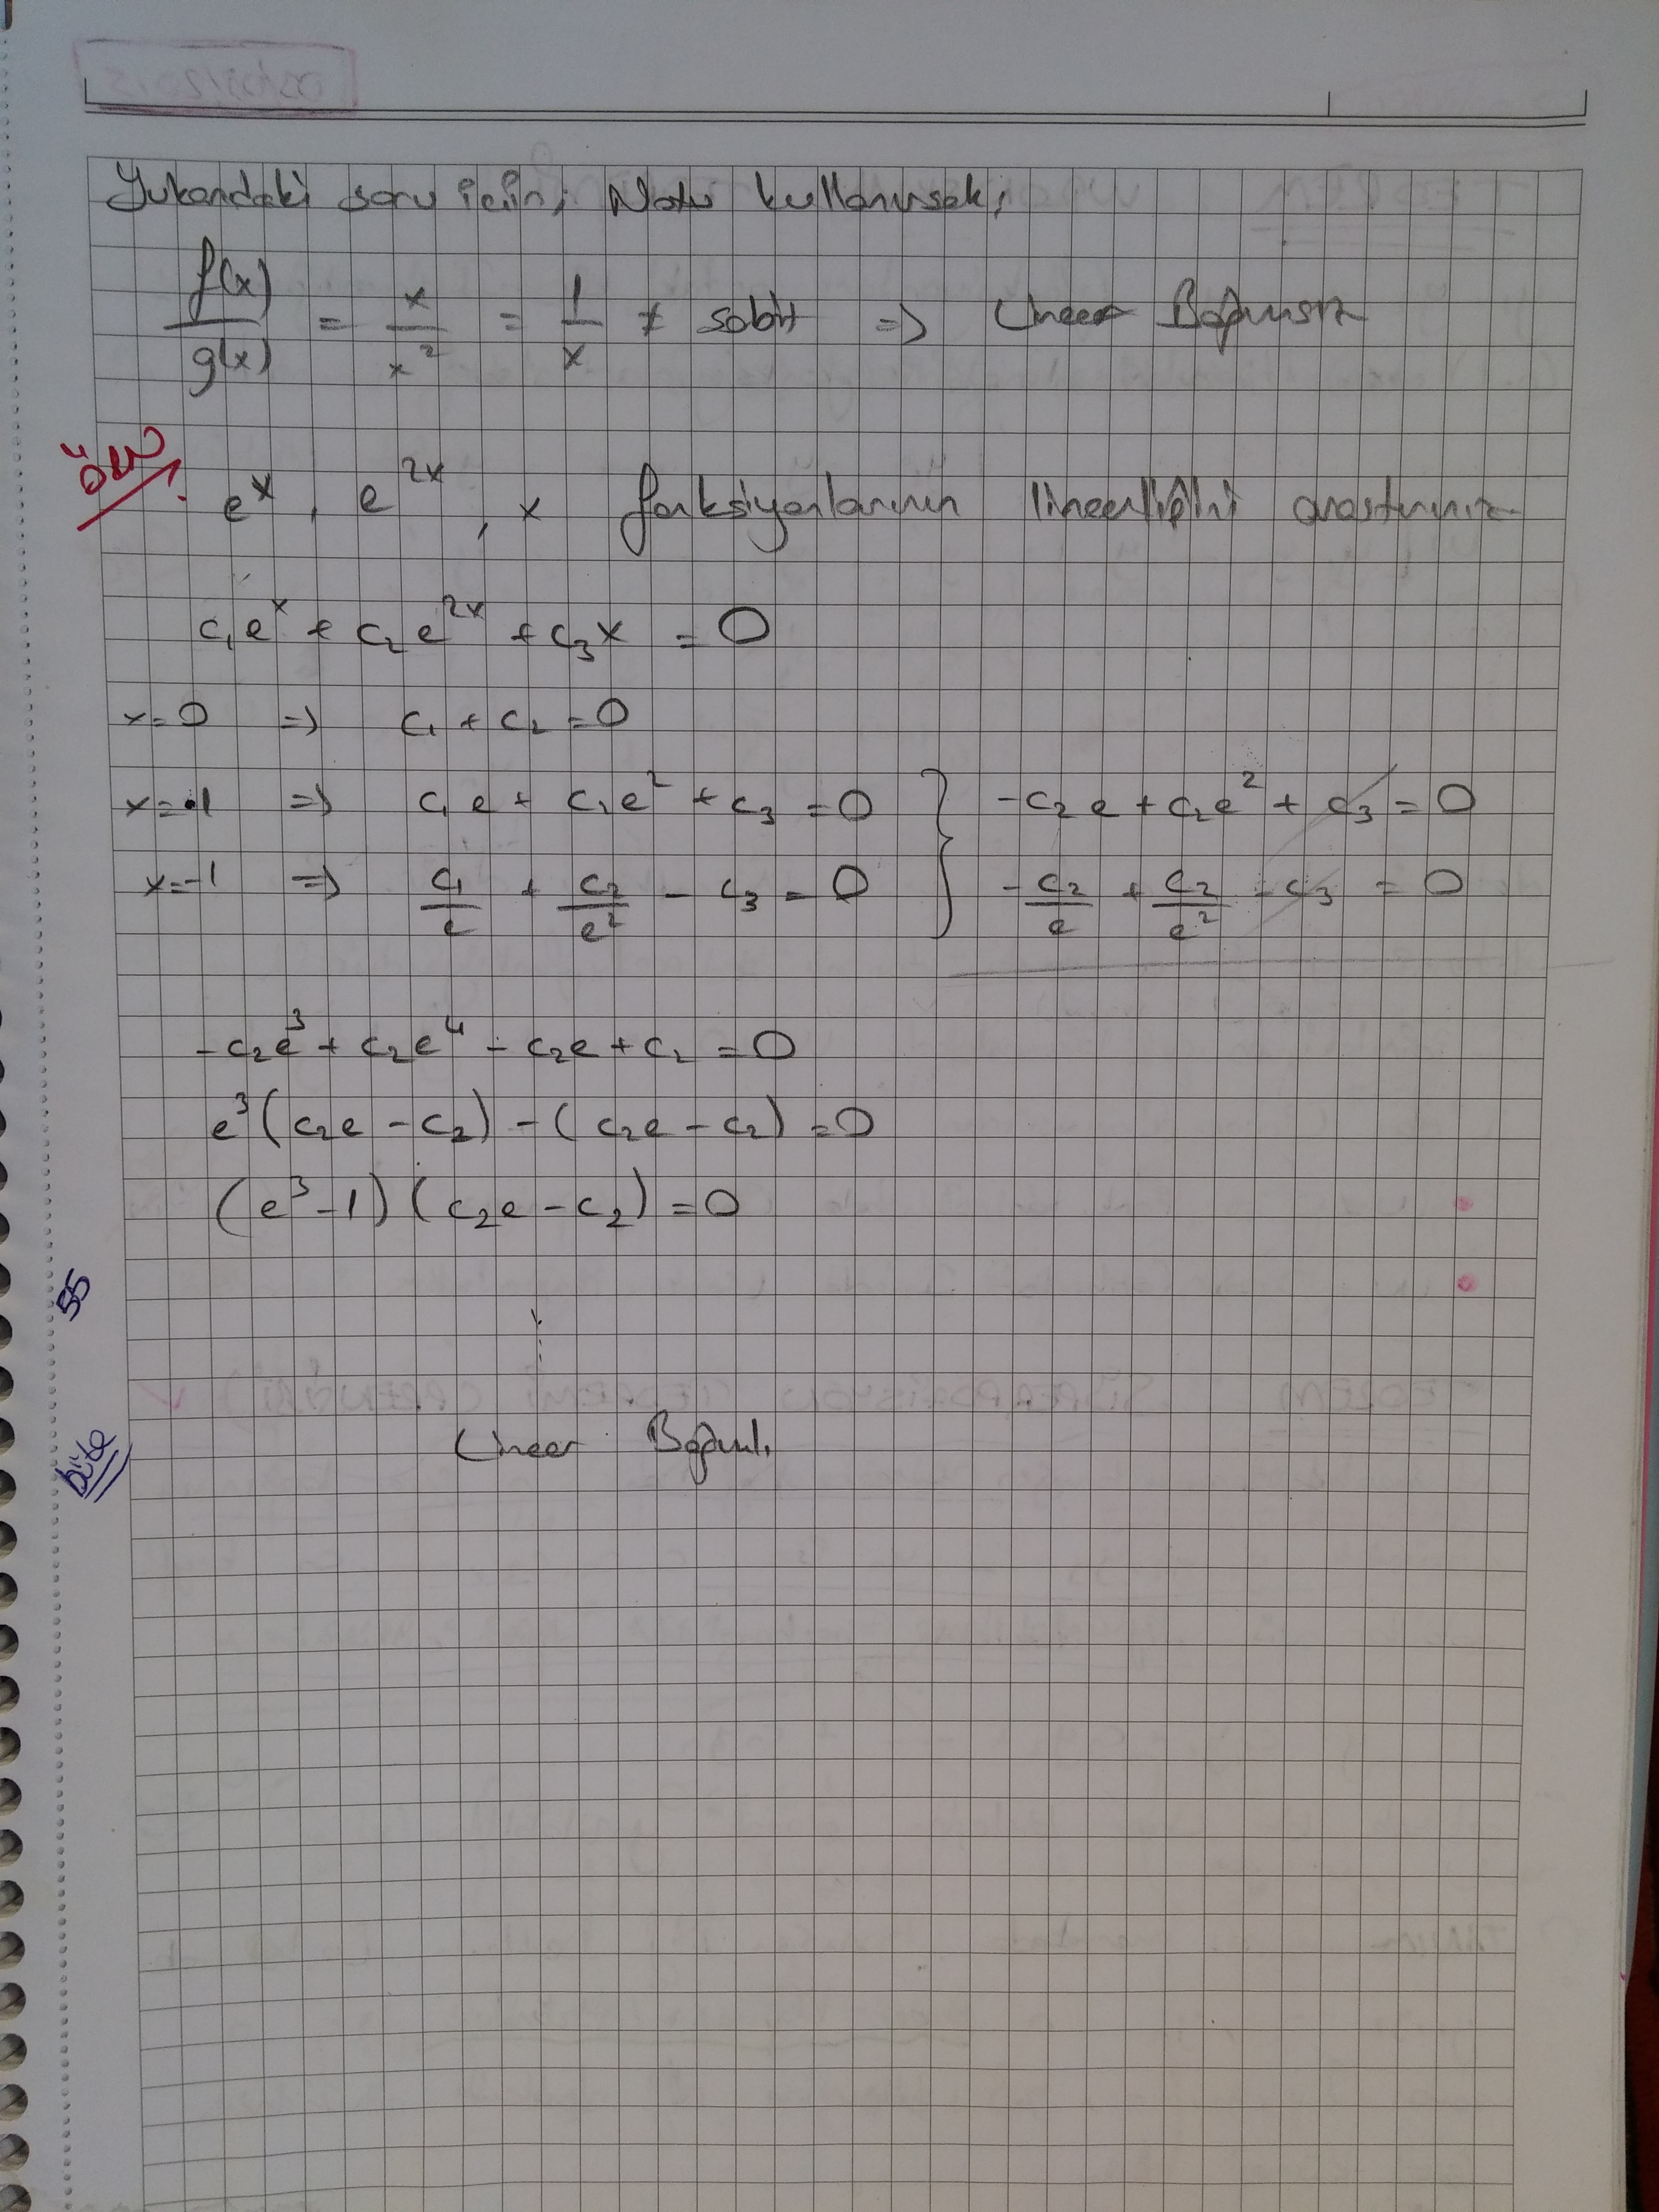 Yukarıdaki soru için; Notu kullanırsak;
f(x)/g(x) = x/x² = 1/x ≠ sabit => Lineer Bağımsız
ÖRN
e^x, e^2x, x fonksiyonlarının lineerliğini araştırınız
c₁e^x + c₂e^2x + c₃x = 0
x=0 => c₁ + c₂ = 0
x=1 => c₁e + c₂e² + c₃ = 0 } -c₂e + c₂e² + c₃ = 0
x=-1 => c₁/e + c₂/e² - c₃ = 0 } -c₂/e + c₂/e² - c₃ = 0
-c₂e³ + c₂e⁴ - c₂e + c₂ = 0
e³(c₂e - c₂) - (c₂e - c₂) = 0
(e³-1)(c₂e - c₂) = 0
55
Lineer Bağıml.
büte